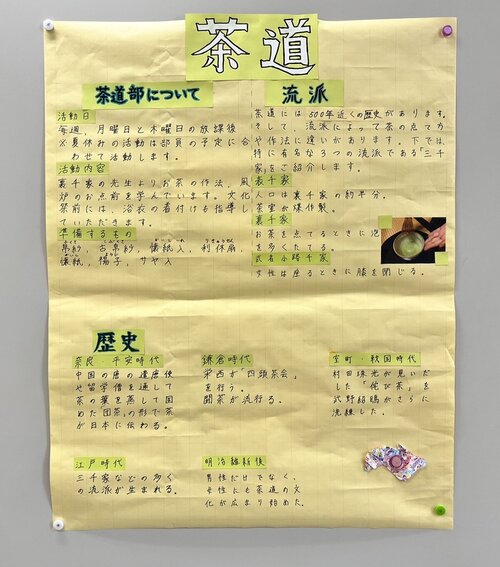 茶道
茶道部について
活動日
毎週，月曜日と木曜日の放課後
※夏休みの活動は部員の予定に合
わせて活動します。
活動内容
裏千家の先生よりお茶の作法，風
炉のお点前を学んでいます。文化
祭前には，浴衣の着付けも指導し
ていただきます。
準備するもの
帛紗，古帛紗，懐紙入，利休扇，
懐紙，楊子，サヤ入
流派
茶道には500年近くの歴史があります。
そして，流派によって茶の点て方
や作法に違いがあります。下では，
特に有名な3つの流派である“三千
家”をご紹介します。
表千家
人口は裏千家の約半分。
茶室が
裏千家
お茶を点てるときに泡
を多くたてる。
武者小路千家
女性は座るときに膝を閉じる。
歴史
奈良 平安時代
中国の唐の遣唐使
や留学僧を通して
茶の葉を蒸して固
めた団茶の形で茶
が日本に伝わる。
鎌倉時代
栄西が“四頭茶会”
を行う。
闘茶が流行る。
室町・戦国時代
村田珠光が見いだ
した「侘び茶」を
武野紹鴎がさらに
洗練した。
江戸時代
三千家などの多く
の流派が生まれる。
明治維新後
男性だけでなく，
女性にも茶道の文
化が広まり始めた。